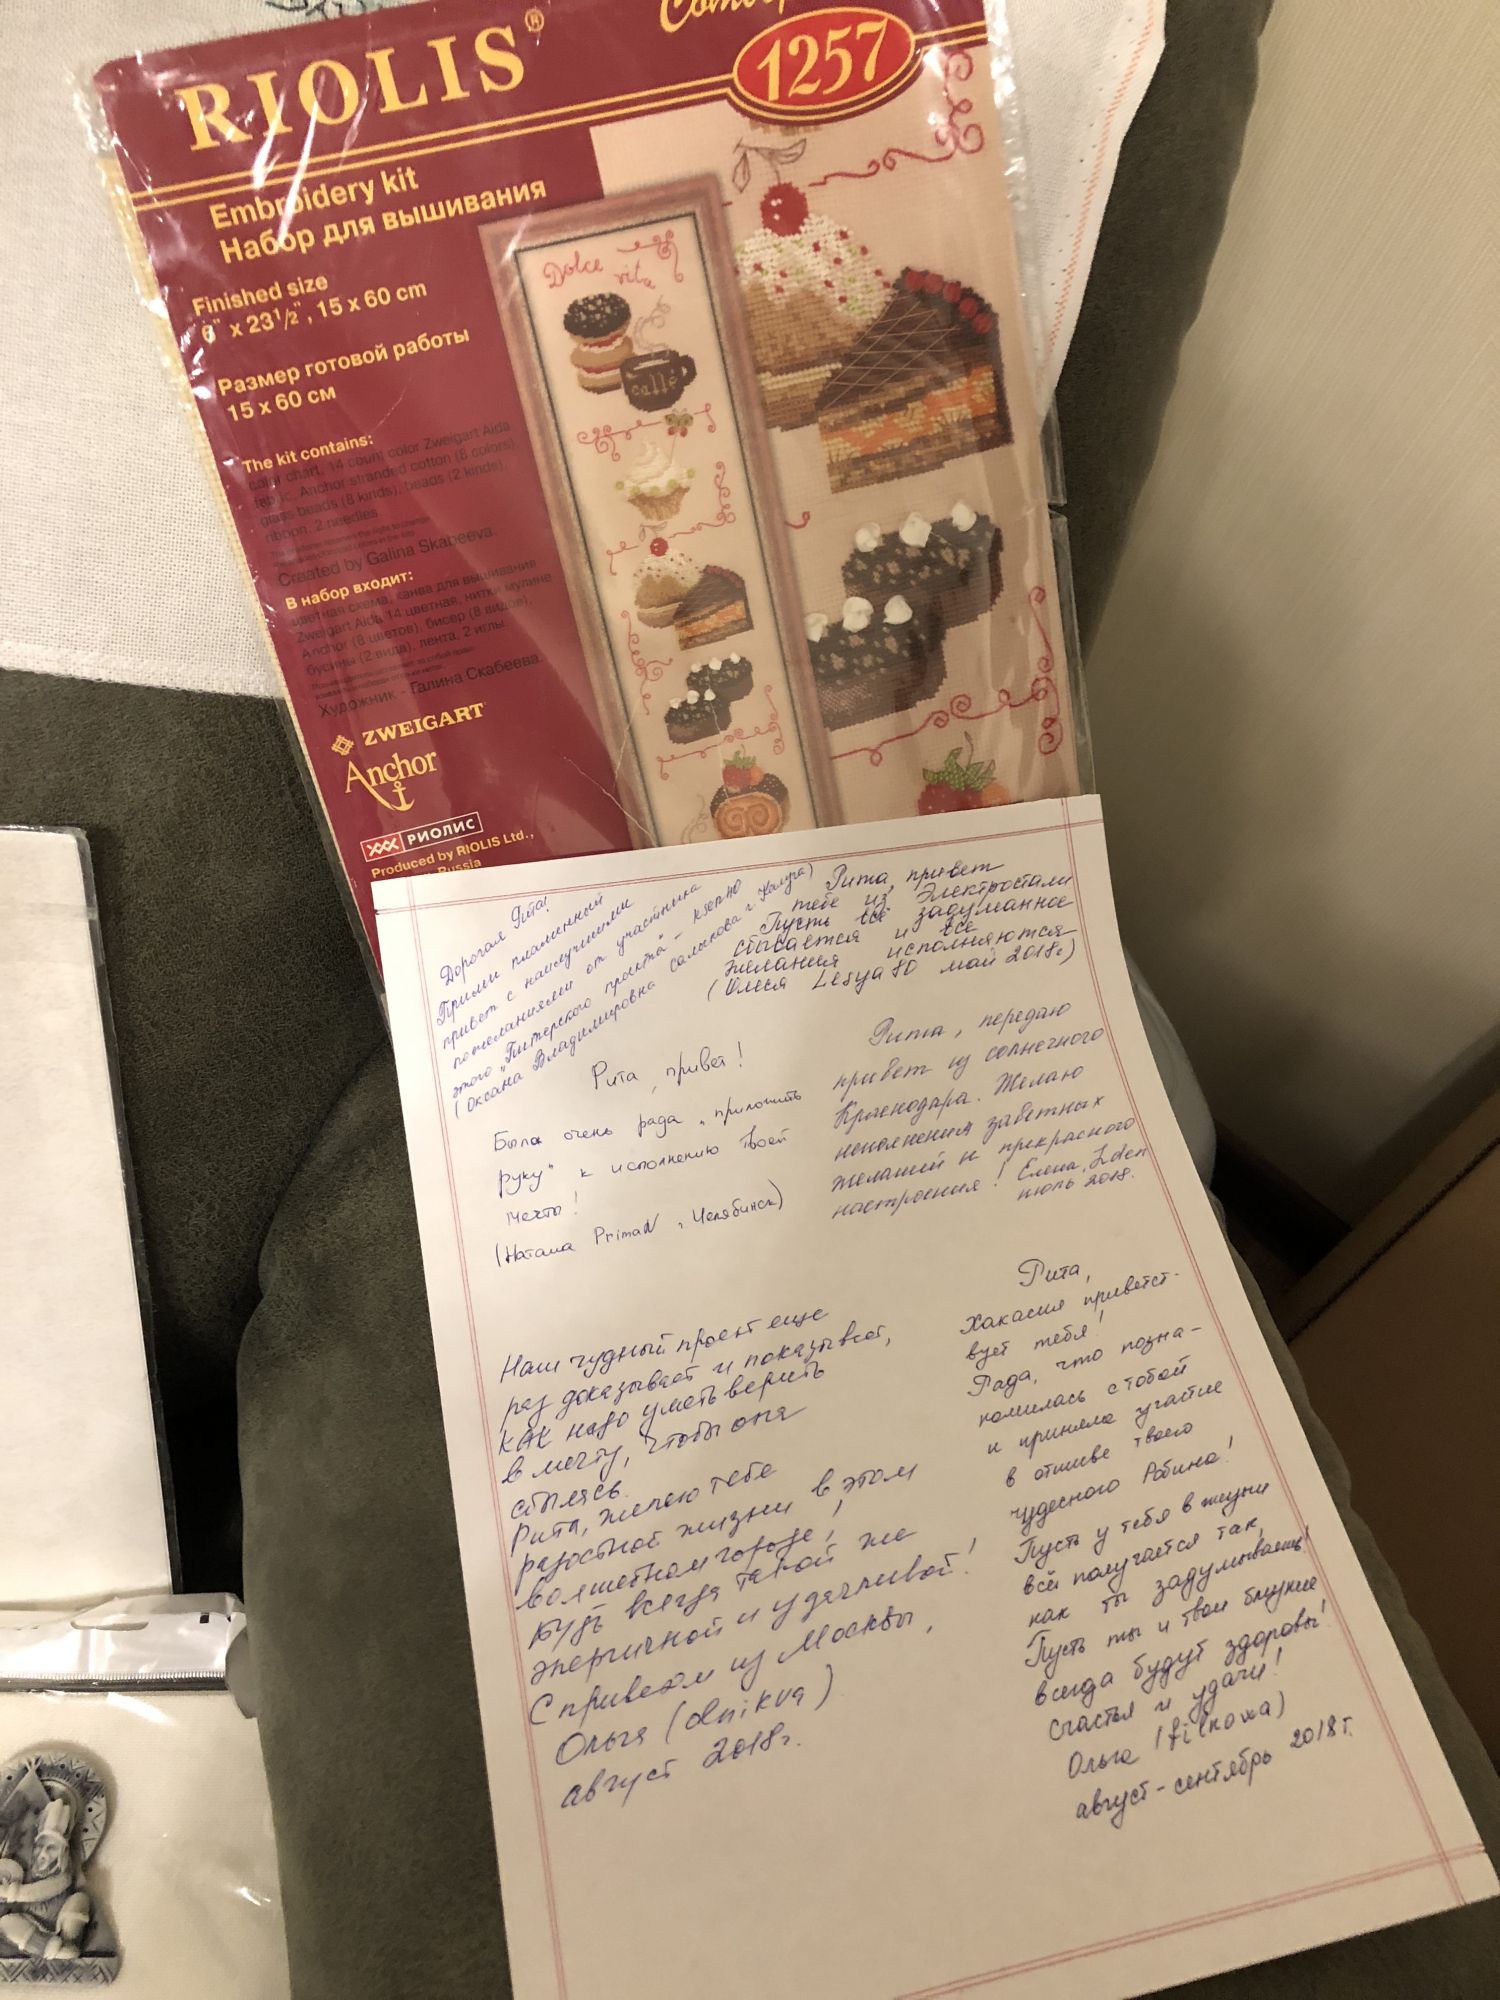 RIOLIS®
1257
Embroidery kit
Набор для вышивания
Finished size
6" x 23 1/2", 15 x 60 cm
Размер готовой работы
15 x 60 см
The kit contains:
color chart, 14 count color Zweigart Aida
fabric, Anchor stranded cotton (8 colors),
glass beads (8 kinds), beads (2 kinds),
ribbon, 2 needles
Created by Galina Skabeeva.
В набор входит:
цветная схема, канва для вышивания
Zweigart Aida 14 цветная, нитки мулине
Anchor (8 цветов), бисер (8 видов),
бусины (2 вида), лента, 2 иглы
Художник - Галина Скабеева.
ZWEIGART
Anchor
РИОЛИС
Produced by RIOLIS Ltd.,
Russia
Dolce
vita
caffé
Дорогая Рита!
Прими пламенный
привет с наилучшими
пожеланиями от участника
этого "Питерского проекта" -
(Оксана Владимировна г. Калуга)
Рита, привет
тебе из Электростали
Пусть всё задуманное
сбывается и все
желания исполняются
(Олеся Lesya80 май 2018г)
Рита, привет!
Была очень рада "приложить
руку" к исполнению твоей
мечты!
(Наташа PrimaN г. Челябинск)
Рита, передаю
привет из солнечного
Краснодара. Желаю
исполнения заветных
желаний и прекрасного
настроения! Елена,
июль 2018.
Наш чудный проект еще
раз доказывает и показывает,
как надо уметь верить
в мечту, чтобы она
сбылась.
Рита, желаю тебе
радостной жизни в этом
волшебном городе!
Будь всегда такой же
энергичной и удачливой!
С приветом из Москвы,
Ольга (olnikva)
август 2018г.
Рита,
Хакасия приветст-
вует тебя!
Рада, что позна-
комилась с тобой
и приняла участие
в отшиве твоего
чудесного Робина!
Пусть у тебя в жизни
всё получается так,
как ты задумываешь!
Пусть ты и твои близкие
всегда будут здоровы!
Счастья и удачи!
Ольга (filkowa)
август-сентябрь 2018г.